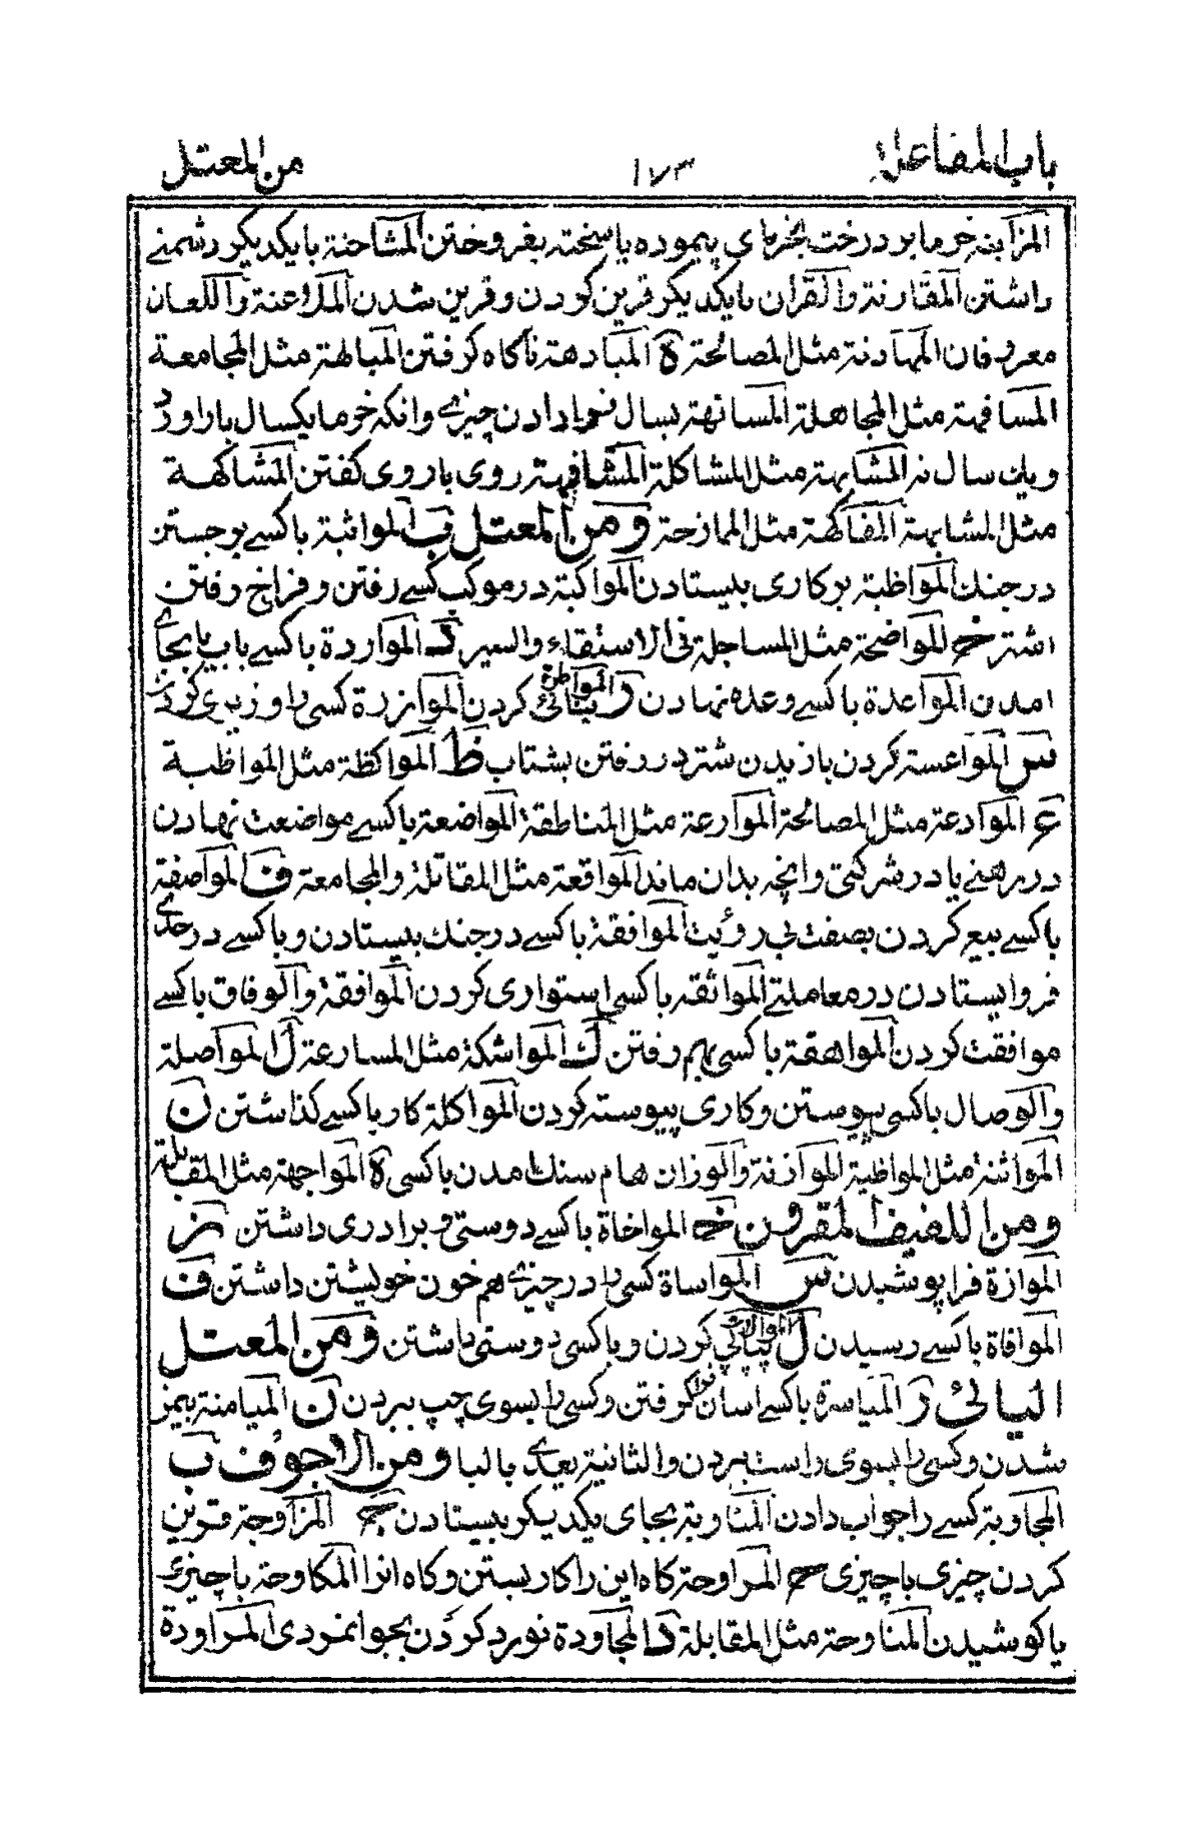 باب المفاعلة ۱۷۳ من المعتل
المزابنة خرما بر درخت بخرمای پیموده یا سخته بفروختن المشاحنة بایکدیکر دشمنے
داشتن المقارنة والقران بایکدیکر قرین کردن وقرین شدن الملاعنة واللعان
معروفان المهادنة مثل المصالحة ه المبادهة ناکاه کرفتن المبالهة مثل المجامعة
المسافهة مثل المجاهلة المسانهة بسال دادن چیزے وانکه خرما یکسال بار اورد
ویك سال نه المشابهة مثل المشاکلة المشافهة روی باروی کفتن المشاکهة
مثل المشابهة المفاکهة مثل الممازحة ومن المعتل ب المواثبة باکسے برجستن
درجنك المواظبة برکاری بیستادن المواکبة در موکب کسے رفتن وفراخ رفتن
اشتر خ المواضخة مثل المساجلة فی الاستقاء والسیر د المواردة باکسے باب یا بجاے
امدن المواعدة باکسے وعده نهادن ر المواطرة کردن الموازرة کسی را وزیری کردن
س المواعسة کردن بازیدن شتر در رفتن بشتاب ظ المواکظة مثل المواظبة
ع الموادعة مثل المصالحة الموارعة مثل المناطقة المواضعة باکسے مواضعت نهادن
در رهنے یا در شرکتی وانچه بدان ماند المواقعة مثل المقاتلة والمجامعة ف المواصفة
باکسے بیع کردن بصفت بی رؤیت الموافقة باکسے درجنك بیستادن وباکسے در حدے
فروایستادن در معاملتے المواثقة باکسی استواری کردن الموافقة والوفاق باکسے
موافقت کردن المواهقة باکسی بهم رفتن ك المواشکة مثل المسارعة ل المواصلة
والوصال باکسی پیوستن وکاری پیوسته کردن المواکلة کار باکسے کذاشتن ن
المواثنة مثل المواظبة الموازنة والوزان هام سنك امدن باکسی ه المواجهة مثل المقابلة
ومن اللفیف المقرون خ المواخاة باکسے دوستی وبرادری داشتن ز
الموازة فرا پوشیدن س المواساة کسی را در چیزے هم خون خویشتن داشتن ف
الموافاة باکسے رسیدن ل الموالاة پیاپی کردن وباکسی دوستی داشتن ومن المعتل
الیائی ر المیاسرة باکسے اسان فرا کرفتن وکسی را بسوی چپ ببردن ن المیامنة بیمن
شدن وکسی را بسوی راست ببردن والثانیة یعدی بالبا ومن الاجوف ب
المجاوبة کسے را جواب دادن المناوبة بجای یکدیکر بیستادن ج المزاوجة قرین
کردن چیزی باچیزی ح المراوحة کاه این را کاربستن وکاه انرا المکاوحة با چیزے
باکوشیدن المناوحة مثل المقابلة د المجاودة نورد کردن بجوانمردی المراودة